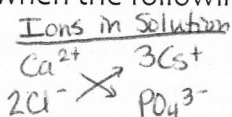 when the followi
Ions in Solution
Ca²⁺ 3Cs⁺
2Cl⁻ PO₄³⁻